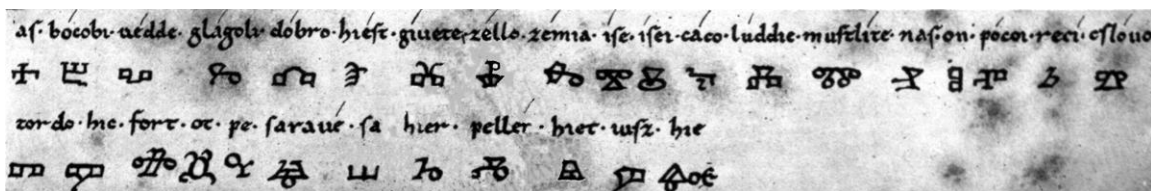 aſ· bócobi· uédde· glágoli· dóbro· hiéſt· giuéte· zéllo· zémia· íſe· íſei· cáco· lúddie· muſtlíte· náſ· on· pócoi· réci· cſlóuo
ⰰ ⰱ ⰲ ⰳ ⰴ ⰵ ⰶ ⰷ ⰸ ⰹ ⰻ ⰽ ⰾ ⰿ ⱀ ⱁ ⱂ ⱃ ⱄ
tordo· hic· fort· ot· pe· ſaraué· ſa hier· pellér· hiet· iuſz· hie
ⱅ ⱆ ⱇ ⱋ ⱎ